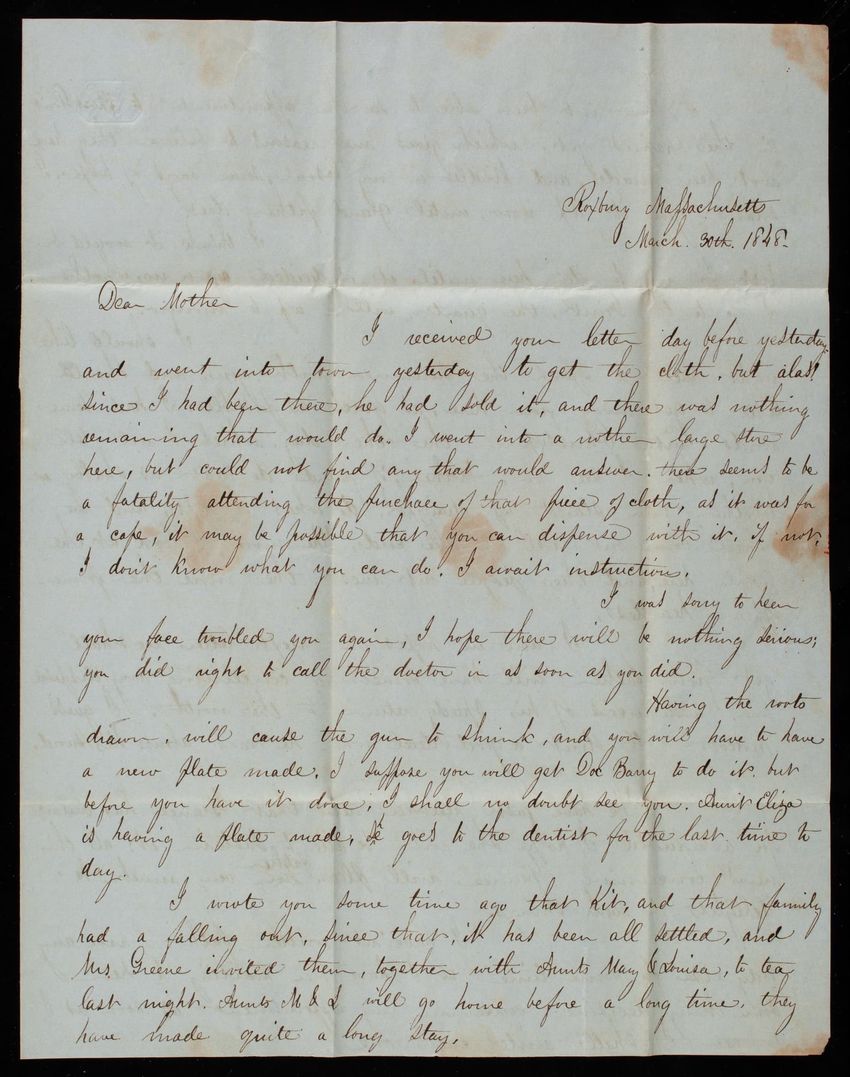 Roxbury Massachusetts
March. 30th. 1848.
Dear Mother
I received your letter day before yesterday
and went into town yesterday to get the cloth, but alas!
since I had been there, he had sold it, and there was nothing
remaining that would do. I went into a nother large store
here, but could not find any that would answer. there seems to be
a fatality attending the purchace of that piece of cloth, as it was for
a cape, it may be possible that you can dispense with it, if not,
I don't know what you can do. I await instruction.
I was sorry to hear
your face troubled you again, I hope there will be nothing serious;
you did right to call the doctor in as soon as you did.
Having the roots
drawn, will cause the gum to shrink, and you will have to have
a new plate made. I suppose you will get Doc Barry to do it. but
before you have it done, I shall no doubt see you. Aunt Eliza
is having a plate made, goes to the dentist for the last time to
day.
I wrote you some time ago that Kit, and that family
had a falling out, since that, it has been all settled, and
Mrs. Greene invited them, together with Aunts Mary & Louisa, to tea
last night. Aunts M & L will go home before a long time. they
have made quite a long stay.